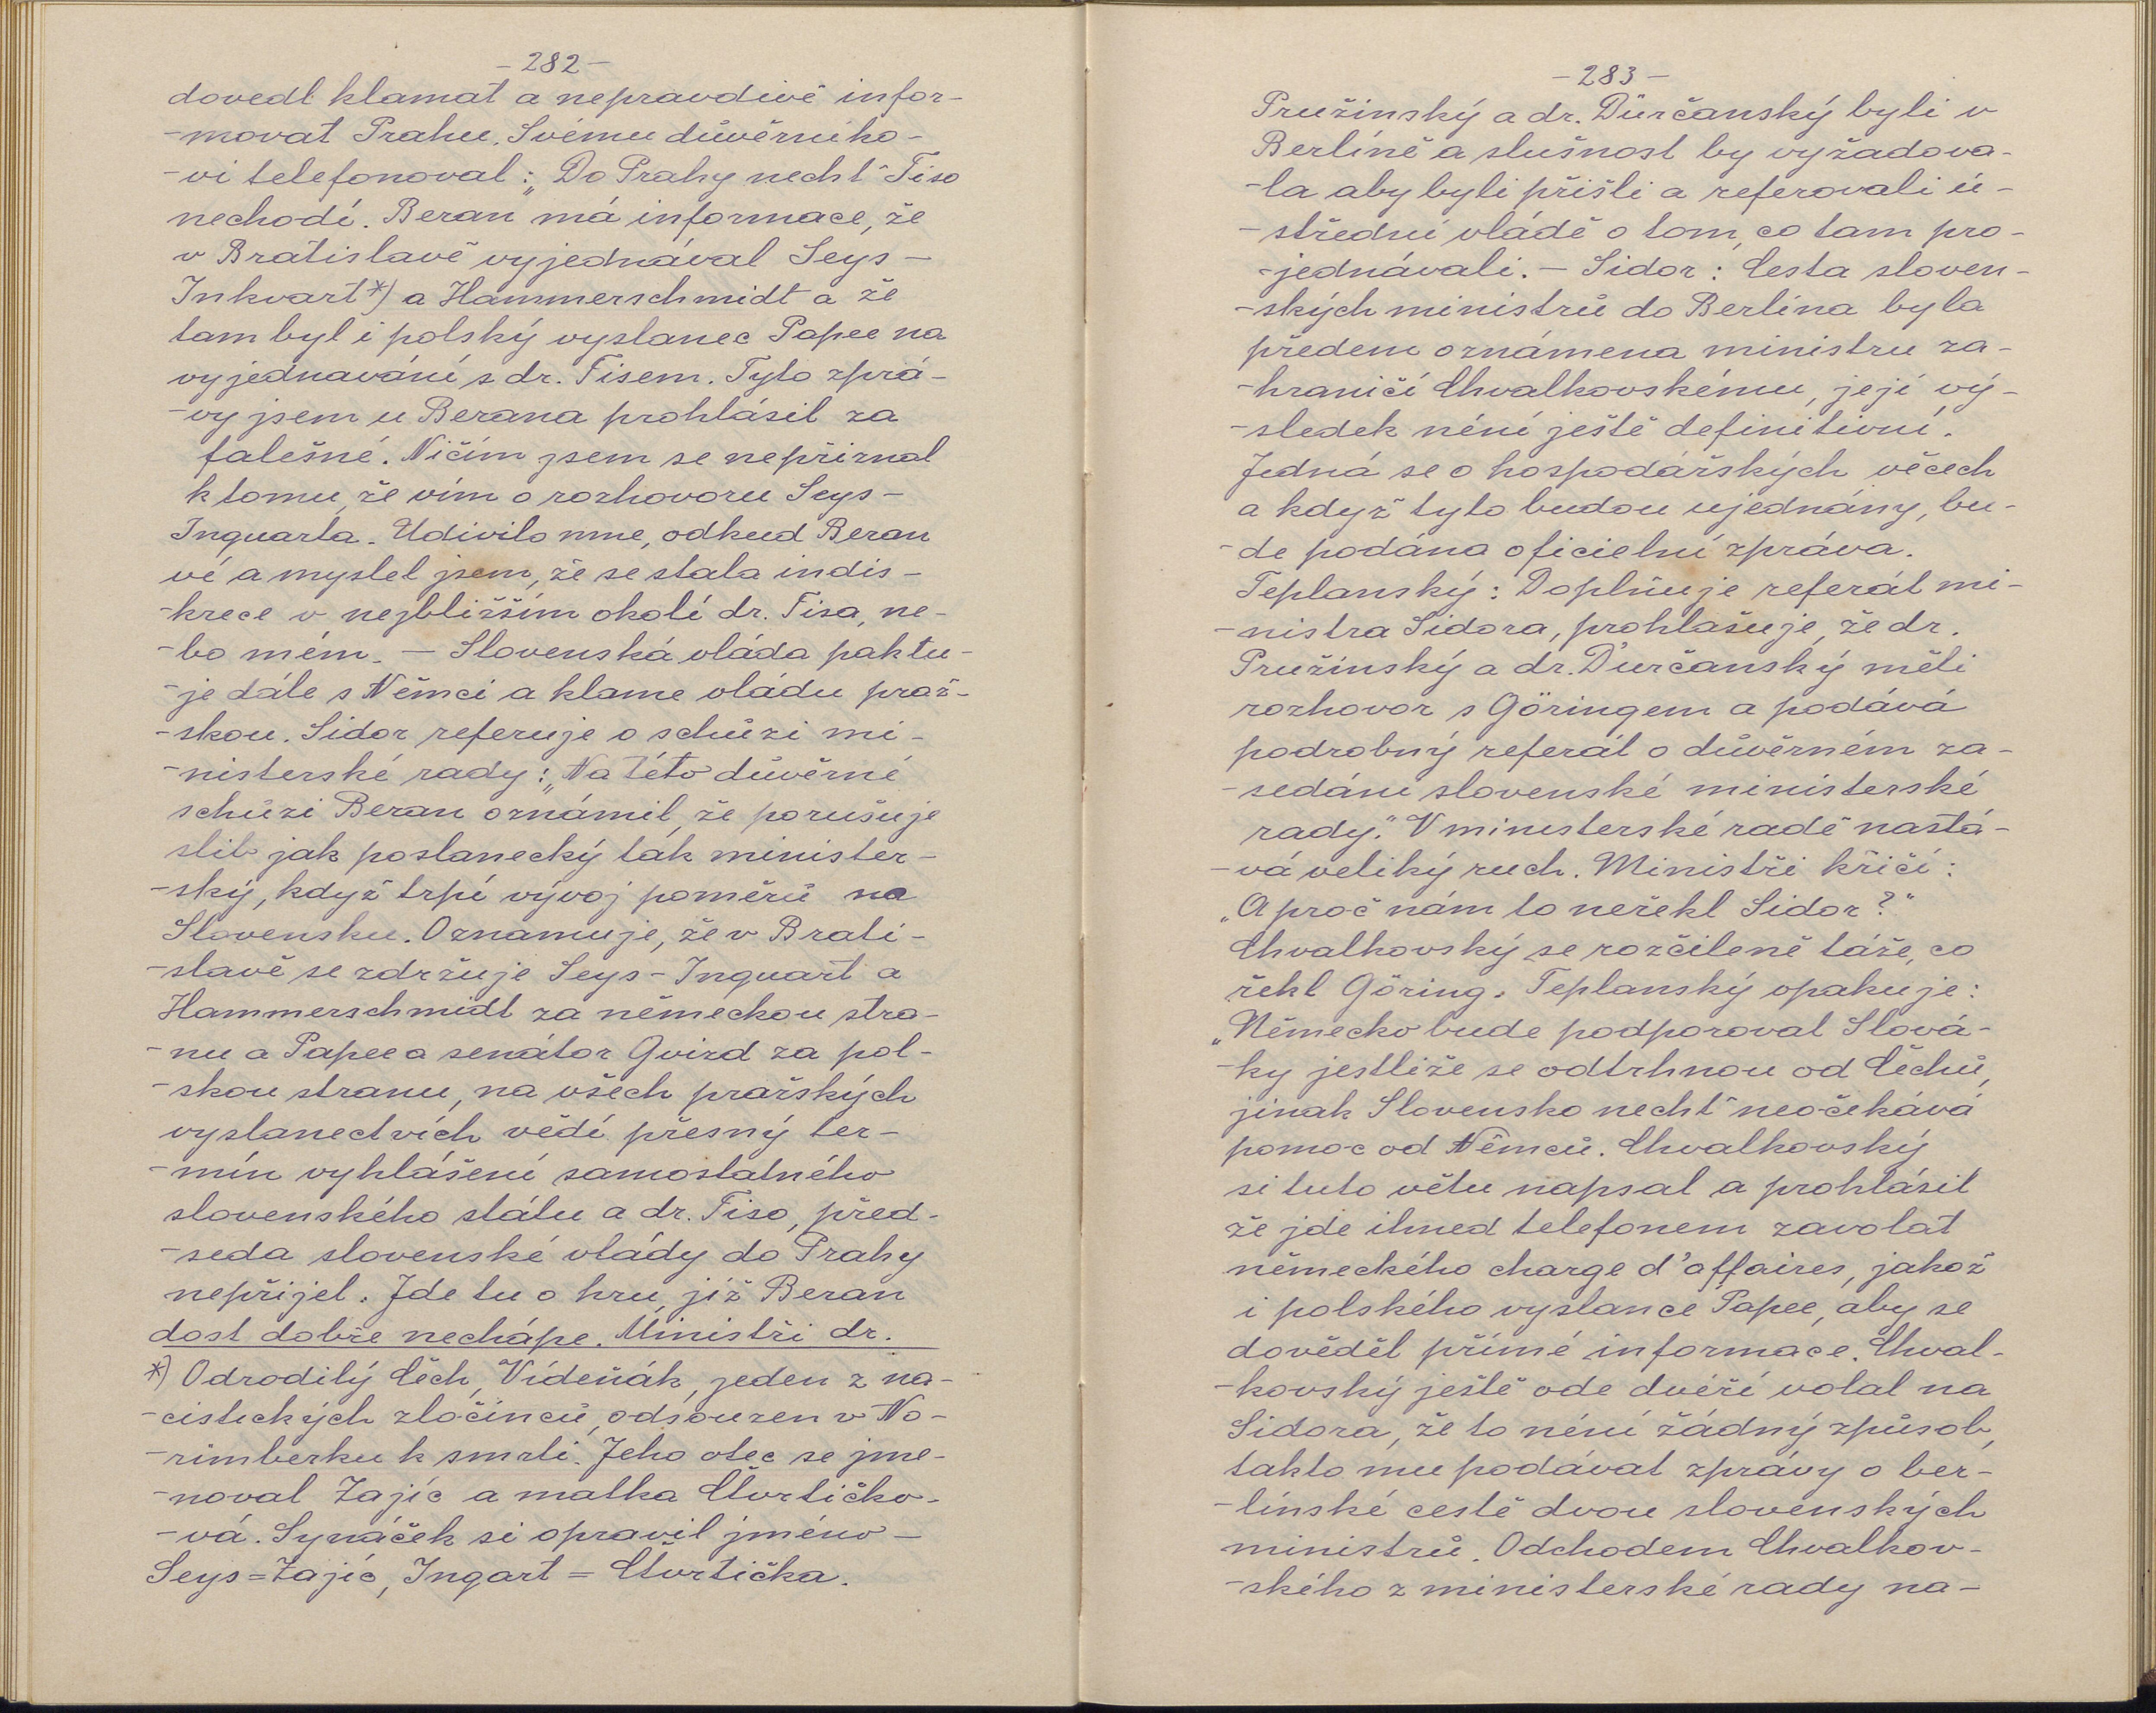 - 282 -
dovedl klamat a nepravdivě infor-
-movat Prahu. Svému důvěrníko-
-vi telefonoval: „Do Prahy nechť Tiso
nechodí. Beran má informace, že
v Bratislavě vyjednával Seys -
Inkvart*) a Hammerschmidt a že
tam byl i polský vyslanec Papee na
vyjednavání s dr. Tisem. Tyto zprá-
-vy jsem u Berana prohlásil za
falešné. Ničím jsem se nepřiznal
k tomu, že vím o rozhovoru Seys-
Inquarta. Udivilo mne, odkud Beran
ví a myslel jsem, že se stala indis-
-krece v nejbližším okolí dr. Tisa, ne-
-bo mém. - Slovenská vláda paktu-
-je dále s Němci a klame vládu praž-
-skou. Sidor referuje o schůzi mi-
-nisterské rady: „Na této důvěrné
schůzi Beran oznámil, že porušuje
slib jak poslanecký tak minister-
-ský, když trpí vývoj poměrů na
Slovensku. Oznamuje, že v Brati-
-slavě se zdržuje Seys-Inquart a
Hammerschmidt za německou stra-
-nu a Papee a senátor Gvizd za pol-
-skou stranu, na všech pražských
vyslanectvích vědí přesný ter-
-mín vyhlášení samostatného
slovenského státu a dr. Tiso, před-
-seda slovenské vlády do Prahy
nepřijel. Jde tu o hru, již Beran
dost dobře nechápe. Ministři dr.
*) Odrodilý Čech, Vídeňák, jeden z na-
-cistických zločinců, odsouzen v No-
-rimberku k smrti. Jeho otec se jme-
-noval Zajíc a matka Čtvrtičko-
-vá. Synáček si opravil jméno -
Seys=Zajíc, Ingart = Čtvrtička.
- 283 -
Pružinský a dr. Ďurčanský byli v
Berlíně a slušnost by vyžadova-
-la aby byli přišli a referovali ú-
-střední vládě o tom, co tam pro-
-jednávali. - Sidor: Cesta sloven-
-ských ministrů do Berlína byla
předem oznámena ministru za-
-hraničí Chvalkovskému, její vý-
-sledek néní ještě definitivní.
Jedná se o hospodářských věcech
a když tyto budou ujednány, bu-
-de podána oficielní zpráva.
Teplanský: Doplňuje referát mi-
-nistra Sidora, prohlašuje, že dr.
Pružinský a dr. Ďurčanský měli
rozhovor s Göringem a podává
podrobný referát o důvěrném za-
-sedání slovenské ministerské
rady." V ministerské radě nastá-
-vá veliký ruch. Ministři křičí:
„A proč nám to neřekl Sidor?"
Chvalkovský se rozčileně táže, co
řekl Göring. Teplanský opakuje:
„Německo bude podporoval Slová-
-ky jestliže se odtrhnou od Čechů,
jinak Slovensko nechť neočekává
pomoc od Němců. Chvalkovský
si tuto větu napsal a prohlásil
že jde ihned telefonem zavolat
německého charge d'affaires, jakož
i polského vyslance Papee, aby se
dověděl přímé informace. Chval-
-kovský ještě ode dvéří volal na
Sidora, že to néní žádný způsob,
takto mu podávat zprávy o ber-
-línské cestě dvou slovenských
ministrů. Odchodem Chvalkov-
-ského z ministerské rady na-